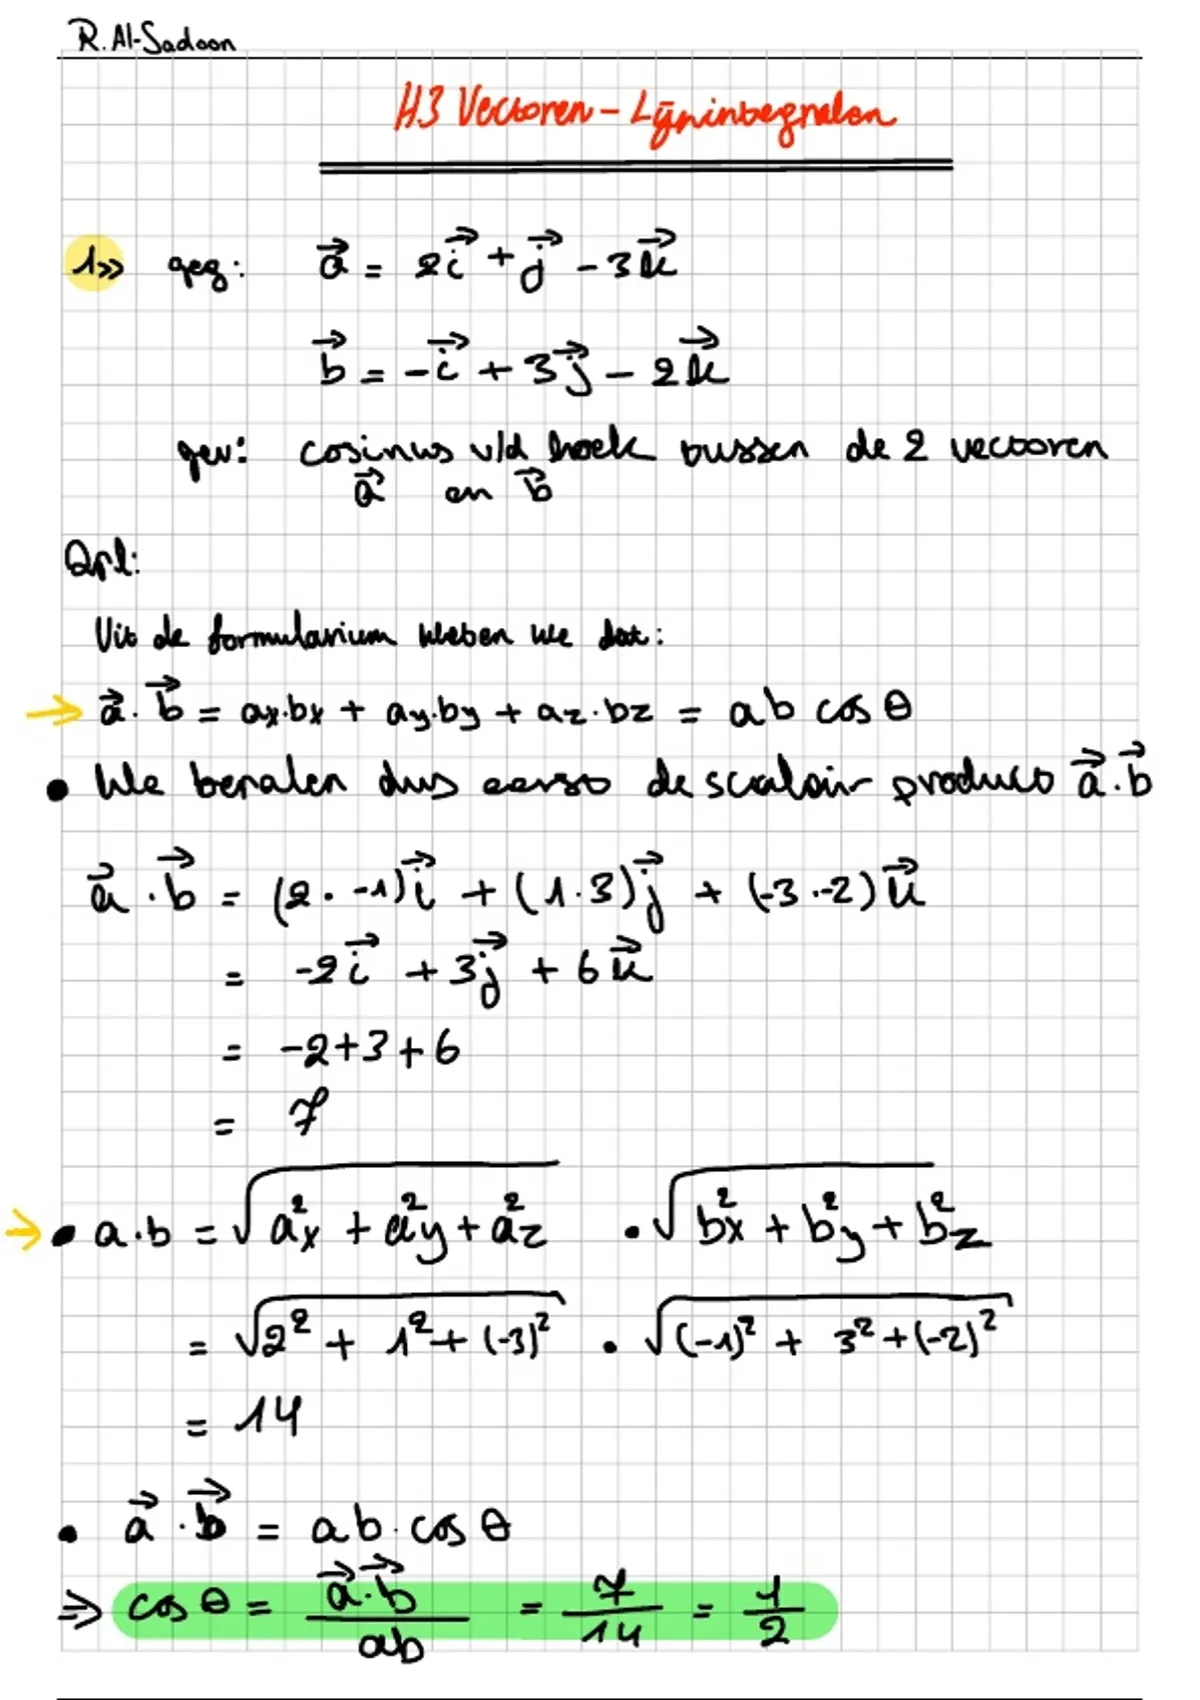 R. Al-Sadoon
H3 Vectoren - Lijnintegralen
1>> geg: a⃗ = 2i⃗ + j⃗ - 3k⃗
b⃗ = -i⃗ + 3j⃗ - 2k⃗
gev: cosinus v/d hoek tussen de 2 vectoren
a⃗ en b⃗
Opl:
Uit de formularium hebben we dat:
→ a⃗ · b⃗ = ax·bx + ay·by + az·bz = ab cos θ
• We beralen dus eerst de scalair product a⃗ · b⃗
a⃗ · b⃗ = (2 · -1)i⃗ + (1·3)j⃗ + (-3·-2)k⃗
= -2i⃗ + 3j⃗ + 6k⃗
= -2+3+6
= 7
→ • a·b = √(a²x + a²y + a²z) • √(b²x + b²y + b²z)
= √(2² + 1² + (-3)²) • √((-1)² + 3² + (-2)²)
= 14
• a⃗ · b⃗ = ab · cos θ
⇒ cos θ = a⃗·b⃗/ab = 7/14 = 1/2